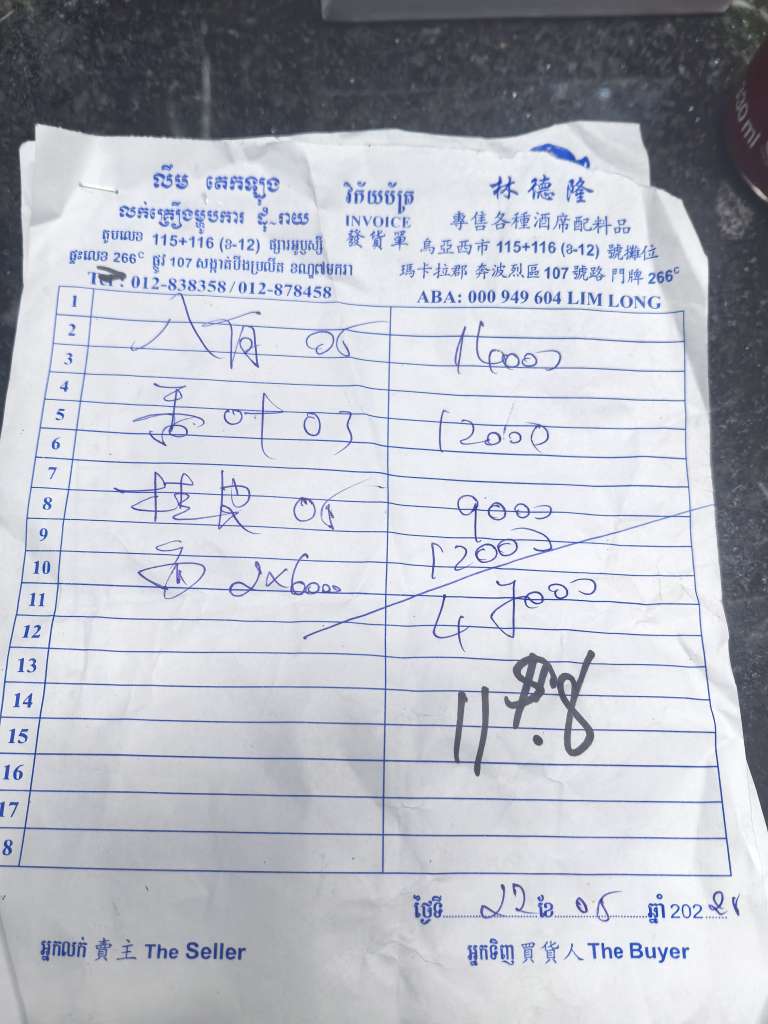 លឹម តេកឡុង
លក់គ្រឿងម្ហូបការ ដុំ-រាយ
តូបលេខ 115+116 (ខ-12) ផ្សារអូឬស្សី
ផ្ទះលេខ 266ᶜ ផ្លូវ 107 សង្កាត់បឹងប្រលឹត ខណ្ឌ៧មករា
Tel : 012-838358/012-878458
វិក័យប័ត្រ
INVOICE
發貨單
林德隆
專售各種酒席配料品
烏亞西市 115+116 (ខ-12) 號攤位
瑪卡拉郡 奔波烈區 107 號路 門牌 266ᶜ
ABA: 000 949 604 LIM LONG
1
2
3
4
5
6
7
8
9
10
11
12
13
14
15
16
17
8
八角
14000
香叶
12000
桂皮
9000
2x6000
12000
47000
11$.8
ថ្ងៃទី 22 ខែ 05 ឆ្នាំ 202
អ្នកលក់ 賣主 The Seller
អ្នកទិញ 買貨人 The Buyer